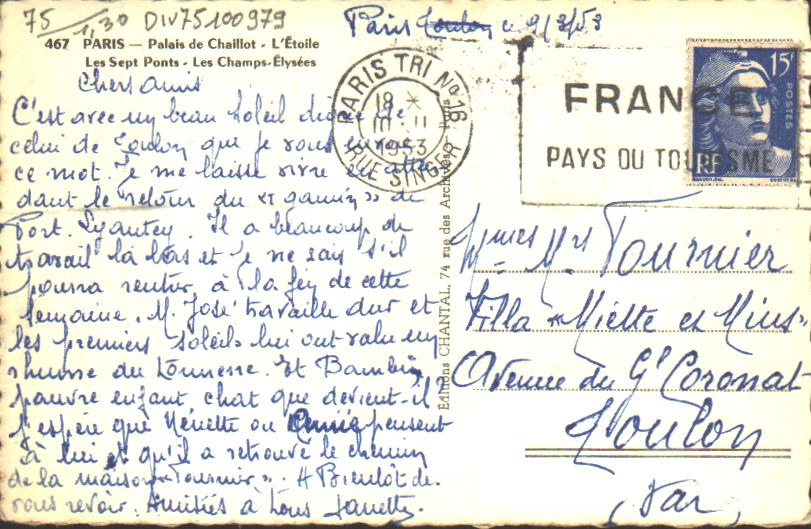 75 1,30 DIV75100979
467 PARIS — Palais de Chaillot - L'Étoile
Les Sept Ponts - Les Champs-Élysées
Paris Toulon ce 9/3/53
PARIS TRI No 16
18
10 - 11
1953
RUE SINGER
FRANCE
PAYS DU TOURISME
15F
POSTES
RF
Chers amis
C'est avec un beau soleil digne de
celui de Toulon que je vous envoie
ce mot. Je me laisse vivre en atten
dant le retour du "gamin" de
Port. Lyautey. Il a beaucoup de
travail là bas et je ne sais s'il
pourra rentrer à la fin de cette
semaine. M. José travaille dur et
les premiers soleils lui ont valu un
rhume du tonnerre. Et Bambin
pauvre enfant chat que devient-il?
J'espère que Nénette ou Annie pensent
à lui et qu'il a retrouvé le chemin
de la maison "Tournier". A Bientôt de
vous revoir. Amitiés à tous
Editions CHANTAL, 74 rue des Archives, Paris
Mr Tournier
Villa "Miette et Minus"
Avenue du Gl Coronat
Toulon
Var